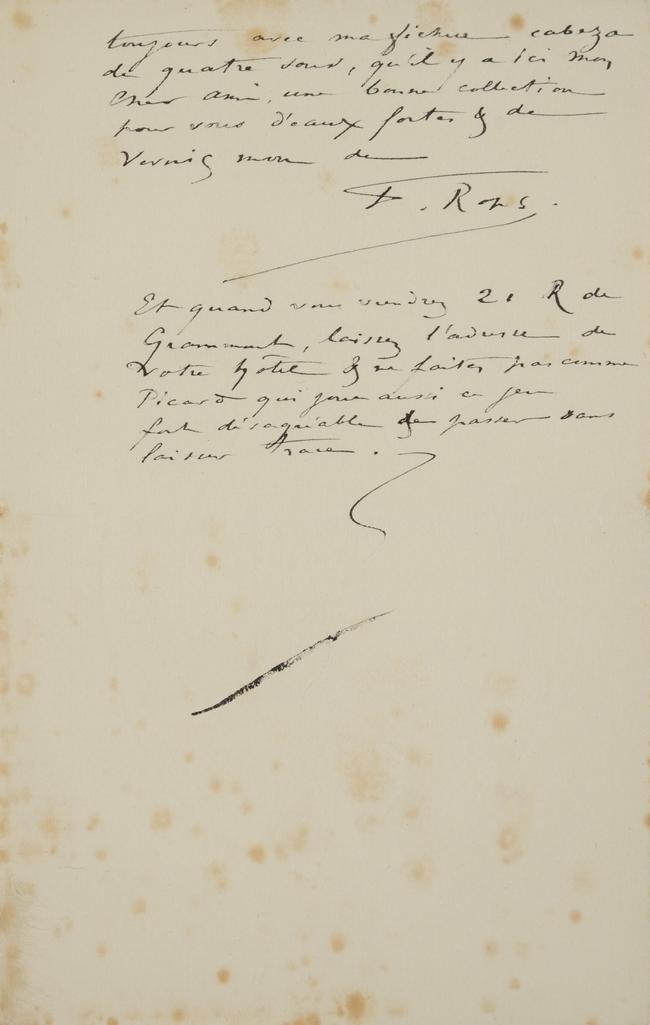 toujours avec ma fichue cabeza
de quatre sous, qu'il y a ici mon
cher ami, une bonne collection
pour vous d'eaux fortes & de
Vernis mou de
F. Rops.
Et quand vous viendrez 21 R de
Grammont, laissez l'adresse de
Votre hôtel & ne faites pas comme
Picard qui joue aussi ce jeu
fort désagréable de passer sans
laisser trace.